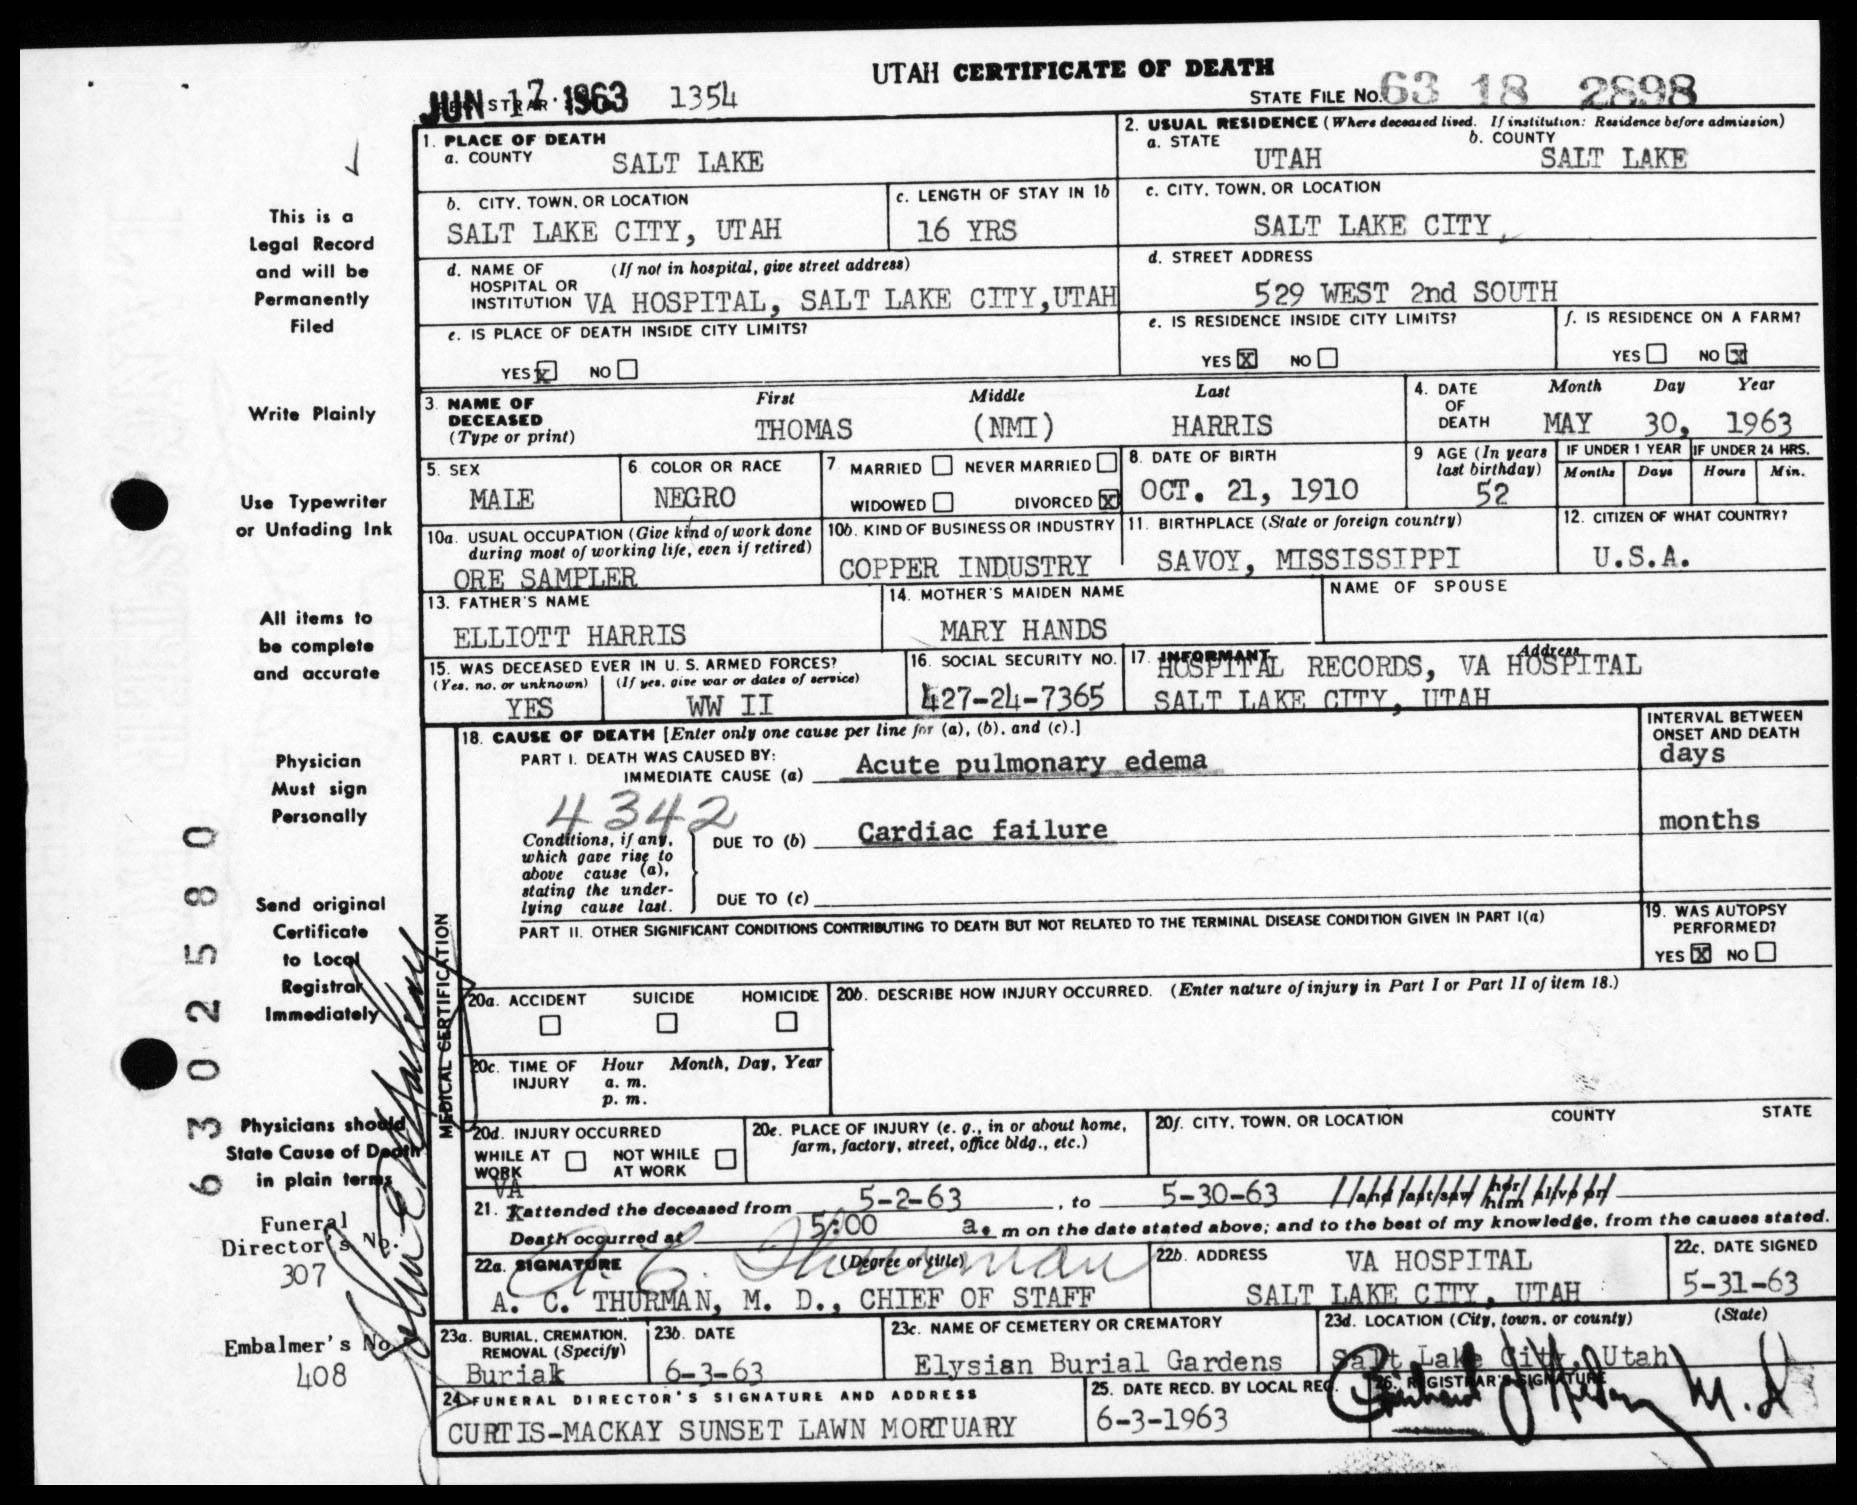 UTAH CERTIFICATE OF DEATH
JUN 17 1963 1354
STATE FILE NO. 63 18 2898
1. PLACE OF DEATH
a. COUNTY SALT LAKE
2. USUAL RESIDENCE (Where deceased lived. If institution: Residence before admission)
a. STATE UTAH b. COUNTY SALT LAKE
b. CITY, TOWN, OR LOCATION SALT LAKE CITY, UTAH
c. LENGTH OF STAY IN 1b 16 YRS
c. CITY, TOWN, OR LOCATION SALT LAKE CITY
d. NAME OF HOSPITAL OR INSTITUTION (If not in hospital, give street address) VA HOSPITAL, SALT LAKE CITY, UTAH
d. STREET ADDRESS 529 WEST 2nd SOUTH
e. IS PLACE OF DEATH INSIDE CITY LIMITS?
YES X NO
e. IS RESIDENCE INSIDE CITY LIMITS?
YES X NO
f. IS RESIDENCE ON A FARM?
YES NO X
3. NAME OF DECEASED (Type or print)
First Middle Last
THOMAS (NMI) HARRIS
4. DATE OF DEATH Month Day Year
MAY 30, 1963
5. SEX MALE
6. COLOR OR RACE NEGRO
7. MARRIED NEVER MARRIED
WIDOWED DIVORCED X
8. DATE OF BIRTH OCT. 21, 1910
9 AGE (In years last birthday) 52
IF UNDER 1 YEAR IF UNDER 24 HRS.
Months Days Hours Min.
10a. USUAL OCCUPATION (Give kind of work done during most of working life, even if retired)
ORE SAMPLER
10b. KIND OF BUSINESS OR INDUSTRY COPPER INDUSTRY
11. BIRTHPLACE (State or foreign country) SAVOY, MISSISSIPPI
12. CITIZEN OF WHAT COUNTRY? U.S.A.
13. FATHER'S NAME ELLIOTT HARRIS
14. MOTHER'S MAIDEN NAME MARY HANDS
NAME OF SPOUSE
15. WAS DECEASED EVER IN U. S. ARMED FORCES?
(Yes, no, or unknown) (If yes, give war or dates of service)
YES WW II
16. SOCIAL SECURITY NO. 427-24-7365
17. INFORMANT Address
HOSPITAL RECORDS, VA HOSPITAL
SALT LAKE CITY, UTAH
MEDICAL CERTIFICATION
18. CAUSE OF DEATH [Enter only one cause per line for (a), (b), and (c).]
INTERVAL BETWEEN ONSET AND DEATH
PART I. DEATH WAS CAUSED BY:
IMMEDIATE CAUSE (a) Acute pulmonary edema days
4342
Conditions, if any, which gave rise to above cause (a), stating the underlying cause last.
DUE TO (b) Cardiac failure months
DUE TO (c)
PART II. OTHER SIGNIFICANT CONDITIONS CONTRIBUTING TO DEATH BUT NOT RELATED TO THE TERMINAL DISEASE CONDITION GIVEN IN PART I(a)
19. WAS AUTOPSY PERFORMED?
YES X NO
20a. ACCIDENT SUICIDE HOMICIDE
20b. DESCRIBE HOW INJURY OCCURRED. (Enter nature of injury in Part I or Part II of item 18.)
20c. TIME OF INJURY Hour Month, Day, Year
a. m.
p. m.
20d. INJURY OCCURRED
WHILE AT WORK NOT WHILE AT WORK
20e. PLACE OF INJURY (e. g., in or about home, farm, factory, street, office bldg., etc.)
20f. CITY, TOWN, OR LOCATION COUNTY STATE
VA
21. I attended the deceased from 5-2-63, to 5-30-63 and last saw her him alive on
Death occurred at 5:00 a. m on the date stated above; and to the best of my knowledge, from the causes stated.
22a. SIGNATURE (Degree or title)
A. C. Thurman
A. C. THURMAN, M. D., CHIEF OF STAFF
22b. ADDRESS VA HOSPITAL
SALT LAKE CITY, UTAH
22c. DATE SIGNED 5-31-63
23a. BURIAL, CREMATION, REMOVAL (Specify) Burial
23b. DATE 6-3-63
23c. NAME OF CEMETERY OR CREMATORY Elysian Burial Gardens
23d. LOCATION (City, town, or county) (State)
Salt Lake City, Utah
24 FUNERAL DIRECTOR'S SIGNATURE AND ADDRESS
CURTIS-MACKAY SUNSET LAWN MORTUARY
25. DATE RECD. BY LOCAL REG. 6-3-1963
26. REGISTRAR'S SIGNATURE
M.D
This is a
Legal Record
and will be
Permanently
Filed
Write Plainly
Use Typewriter
or Unfading Ink
All items to
be complete
and accurate
Physician
Must sign
Personally
Send original
Certificate
to Local
Registrar
Immediately
Physicians should
State Cause of Death
in plain terms
Funeral
Director's No.
307
Embalmer's No.
408
6302580